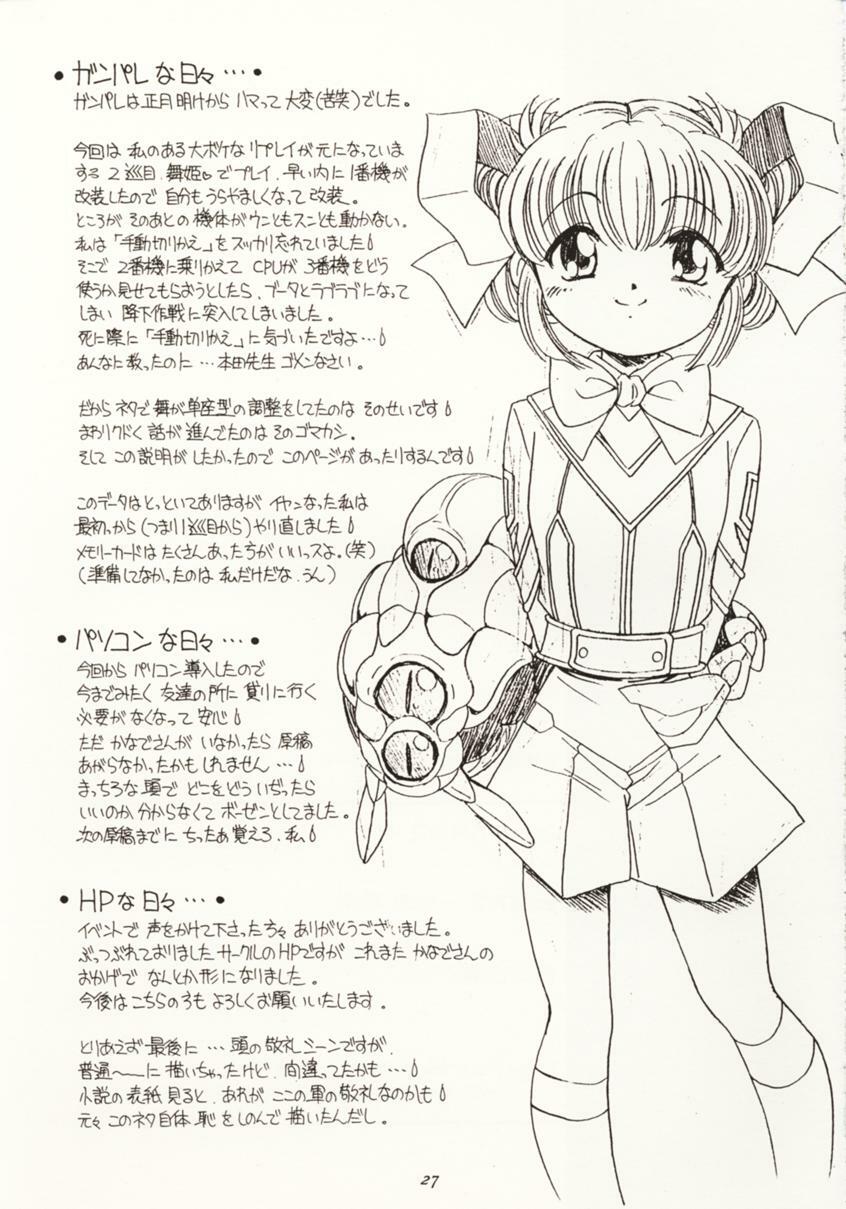 ●ガンパレな日々…●
ガンパレは正月明けからハマって大変(苦笑)でした。
今回は私のある大ボケなリプレイが元になっていま
する2巡目、舞姫♡でプレイ、早い内に1番機が
改装したので自分もうらやましくなって改装。
ところがそのあとの機体がウンともスンとも動かない。
私は「手動切りかえ」をスッカリ忘れていました
そこで2番機に乗りかえてCPUが3番機をどう
使うか見せてもらおうとしたら、ブータとラブラブになって
しまい降下作戦に突入してしまいました。
死に際に「手動切りかえ」に気づいたですよ…
あんなに教ったのに…本田先生ゴメンなさい。
だからネタで舞が単座型の調整をしてたのはそのせいです
まわりクドく話が進んでたのはそのゴマカシ。
そしてこの説明がしたかったのでこのページがあったりするんです
このデータはとっといてありますがイヤンなった私は
最初っから(つまり1巡目から)やり直しました
メモリーカードはたくさんあった方がいいっスよ。(笑)
(準備してなかったのは私だけだな、うん)
●パソコンな日々…●
今回からパソコン導入したので
今までみたく友達の所に貸りに行く
必要がなくなって安心
ただかなでさんがいなかったら原稿
あがらなかったかもしれません…
まっちろな頭でどこをどういぢったら
いいのか分からなくてボーゼンとしてました。
次の原稿までにちったあ覚えろ、私
●HPな日々…●
イベントで声をかけて下さった方々ありがとうございました。
ぶっつぶれておりましたサークルのHPですがこれまたかなでさんの
おかげでなんとか形になりました。
今後はこちらの方もよろしくお願いいたします。
とりあえず最後に…頭の敬礼シーンですが、
普通〜に描いちゃったけど、間違ってたかも…
小説の表紙見ると、あれがここの軍の敬礼なのかも
元々このネタ自体、恥をしのんで描いたんだし。
27